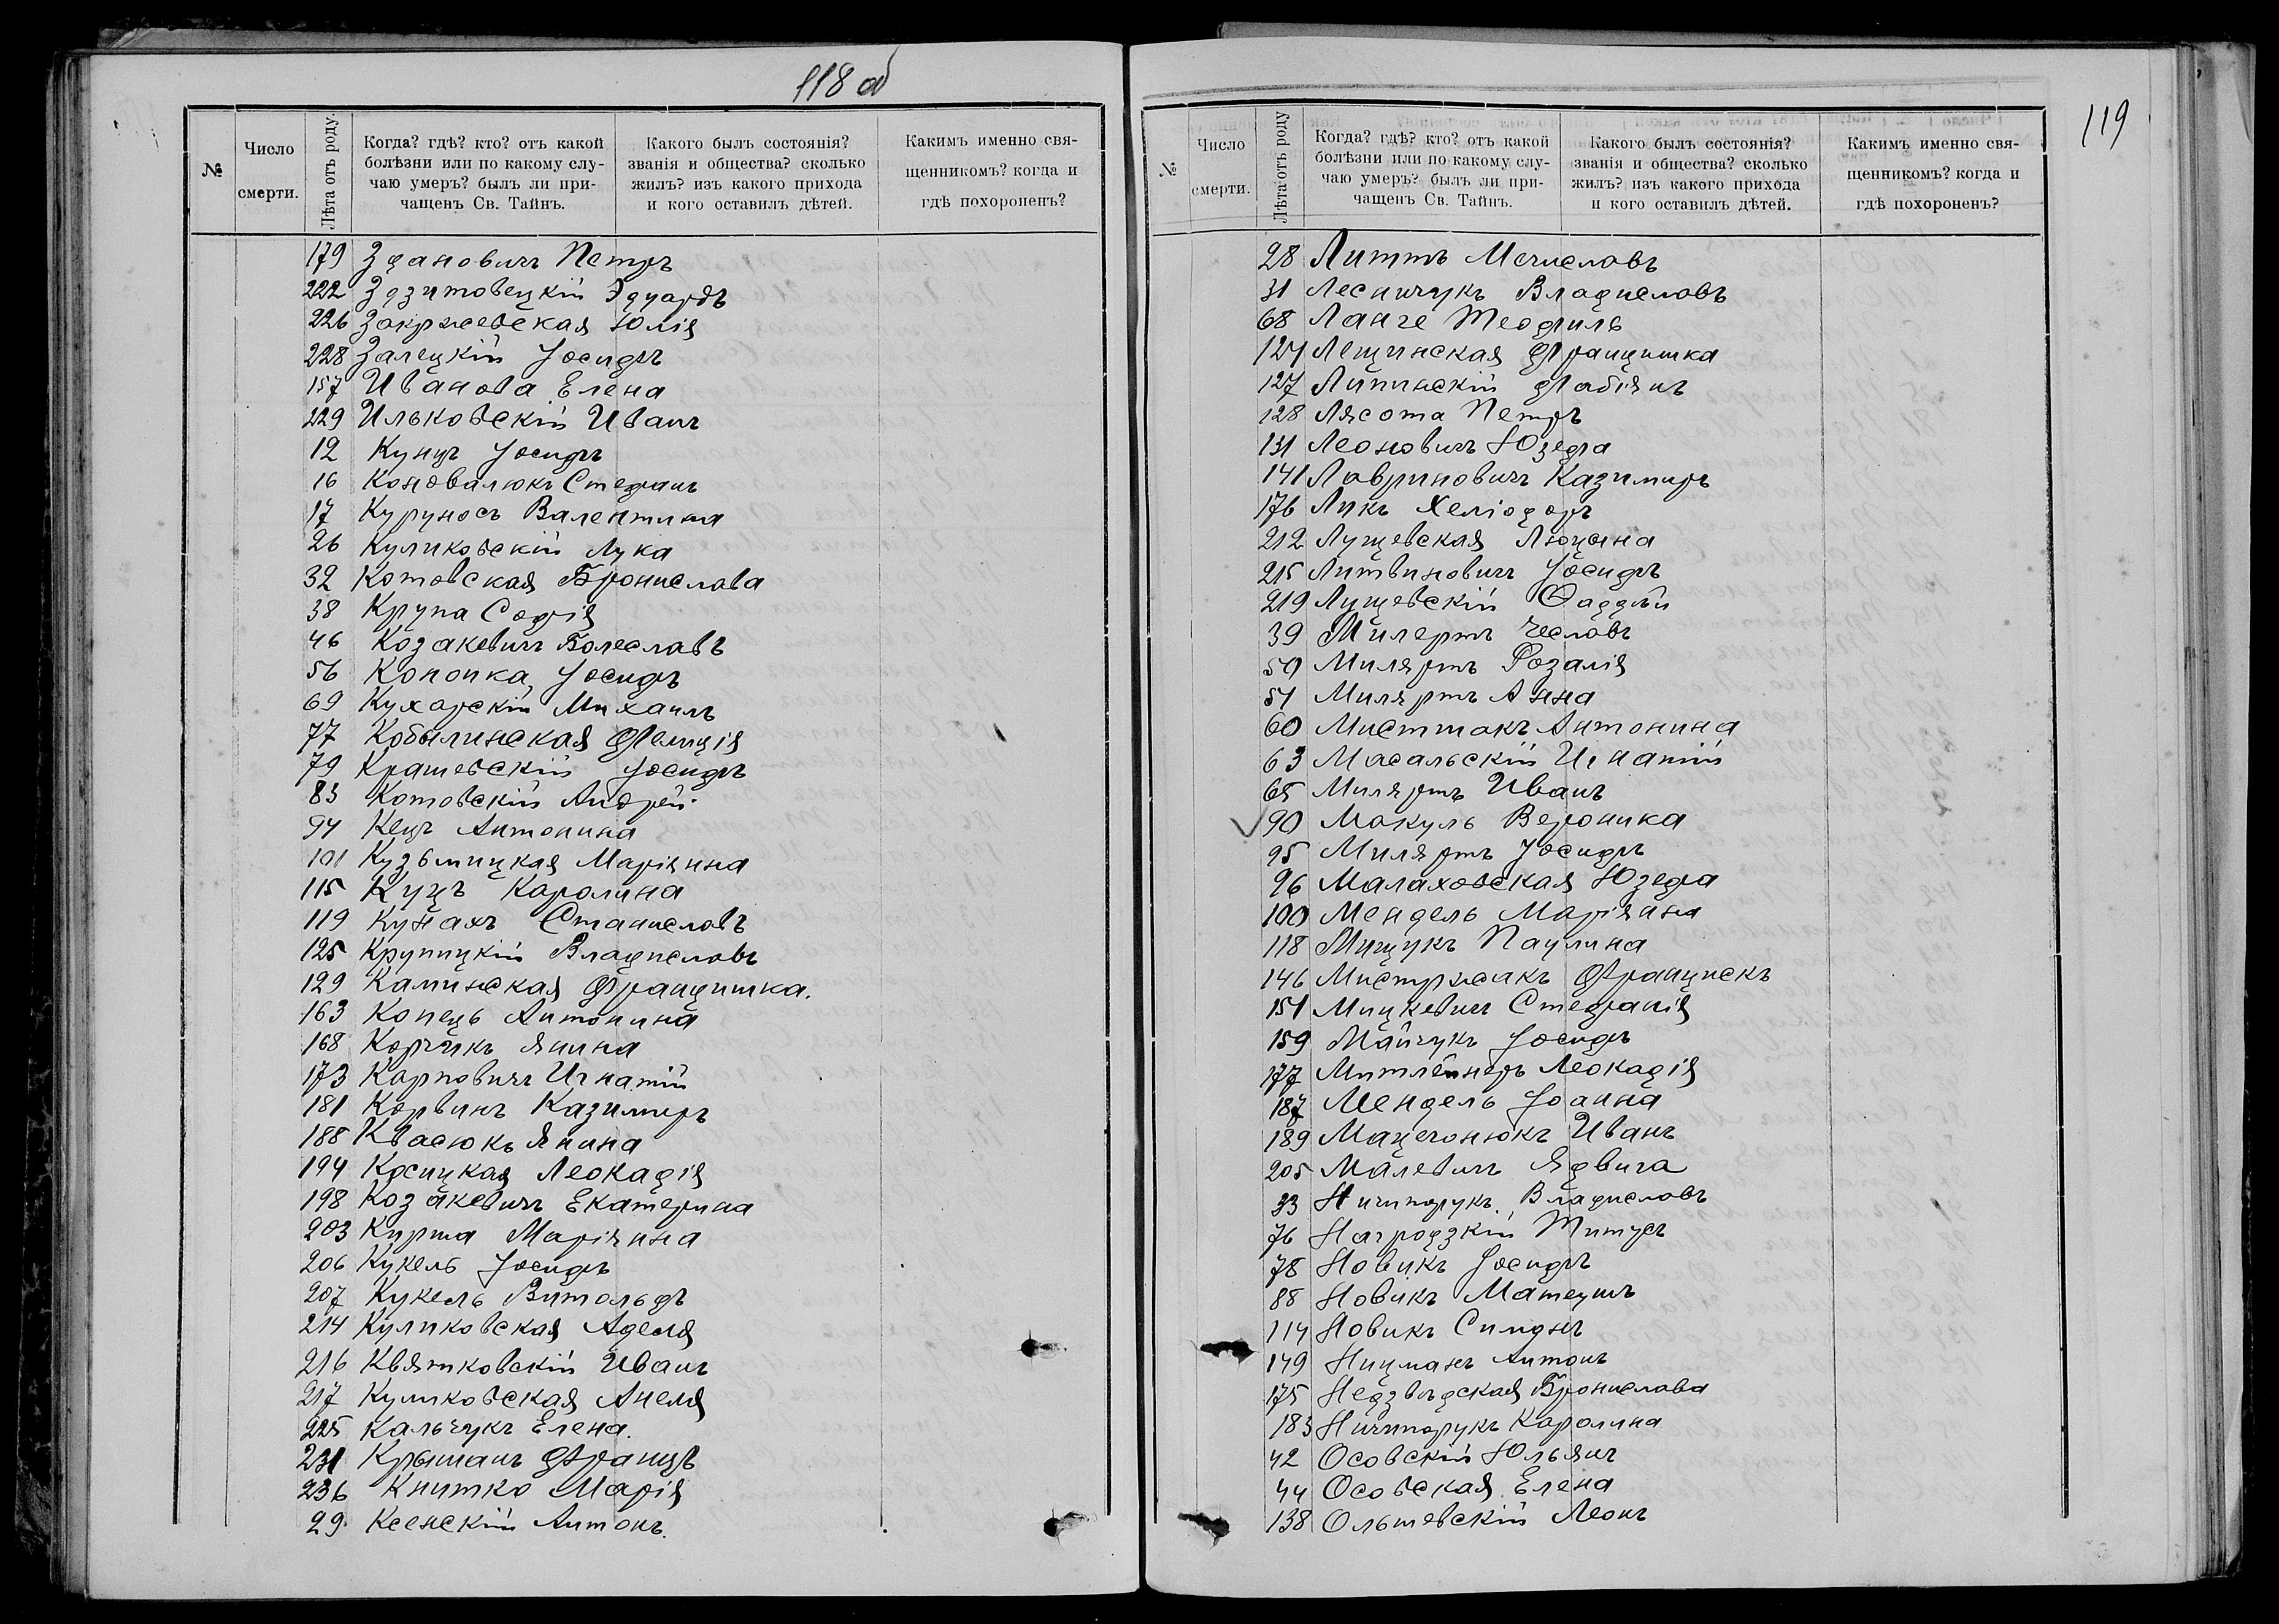 118 об
№
Число
смерти.
Лѣта отъ роду.
Когда? гдѣ? кто? отъ какой
болѣзни или по какому слу-
чаю умеръ? былъ ли при-
чащенъ Св. Тайнъ.
Какого былъ состоянія?
званія и общества? сколько
жилъ? изъ какого прихода
и кого оставилъ дѣтей.
Какимъ именно свя-
щенникомъ? когда и
гдѣ похороненъ?
179 Здановичъ Петръ
222 Здзитовецкій Эдуардъ
226 Закржевская Юлія
228 Залецкій Іосифъ
157 Иванова Елена
229 Ильковскій Иванъ
12 Кунцъ Іосифъ
16 Коновалюкъ Стефанъ
17 Куруносъ Валентина
26 Куликовскій Лука
32 Котовская Брониславa
38 Крупа Софія
46 Козакевичъ Болеславъ
56 Копопка Іосифъ
69 Кухарскій Михаилъ
77 Кобылинская Фелиція
79 Крашевскій Іосифъ
83 Котовскій Андрей
94 Кецъ Антонина
101 Кузьмицкая Маріянна
115 Куцъ Каролина
119 Кунахъ Станиславъ
125 Крупицкій Владиславъ
129 Калинская Францишка.
163 Копець Антонина
168 Корчикъ Янина
173 Карповичъ Игнатій
181 Корвинъ Казимиръ
188 Квасюкъ Янина
194 Косицкая Леокадія
198 Козакевичъ Екатерина
203 Кирша Маріянна
206 Кукель Іосифъ
207 Кукель Витольдъ
214 Куликовская Аделя
216 Квятковскій Иванъ
217 Куликовская Анеля
225 Кальчукъ Елена.
231 Крышанъ Францъ
236 Книтко Марія
29. Ксенскій Антонъ.
119
№
Число
смерти.
Лѣта отъ роду
Когда? гдѣ? кто? отъ какой
болѣзни или по какому слу-
чаю умеръ? былъ ли при-
чащенъ Св. Тайнъ.
Какого былъ состоянія?
званія и общества? сколько
жилъ? изъ какого прихода
и кого оставилъ дѣтей.
Какимъ именно свя-
щенникомъ? когда и
гдѣ похороненъ?
28 Литтъ Мечиславъ
31 Лесничукъ Владиславъ
68 Ланге Теофиль
124 Лещинская Францишка
127 Липинскій Фабіянъ
128 Лясота Петръ
131 Леоновичъ Юзефа
141 Лавриновичъ Казимиръ
176 Ликъ Хеліодоръ
212 Лущевская Люцына
215 Литвиновичъ Іосифъ
219 Лущевскій Ѳаддѣй
39 Милертъ Чеславъ
50 Миляртъ Розалія
51 Миляртъ Анна
60 Мистшакъ Антонина
63 Масальскій Игнатій
65 Милярть Иванъ
90 Макуль Вероника
95 Милярть Іосифъ
96 Малаховская Юзефа
100 Мендель Маріянна
118 Мищукъ Паулина
146 Мистржакъ Францискъ
151 Мицкевичъ Стефанія
159 Майчукъ Іосифъ
177 Митлейнеръ Леокадія
187 Мендель Іоанна
189 Мацегонюкъ Иванъ
205 Малевичъ Ядвига
33 Ничипорукъ Владиславъ
76 Нагродзкій Титусъ
78 Новикъ Іосифъ
88 Новикъ Матеушъ
114 Новикъ
149 Ницманъ Антонъ
175 Недзвѣдская Бронислава
183 Ничипорукъ Каролина
42 Осовскій Юльянъ
44 Осовская Елена
138 Ольшевскій Леонъ